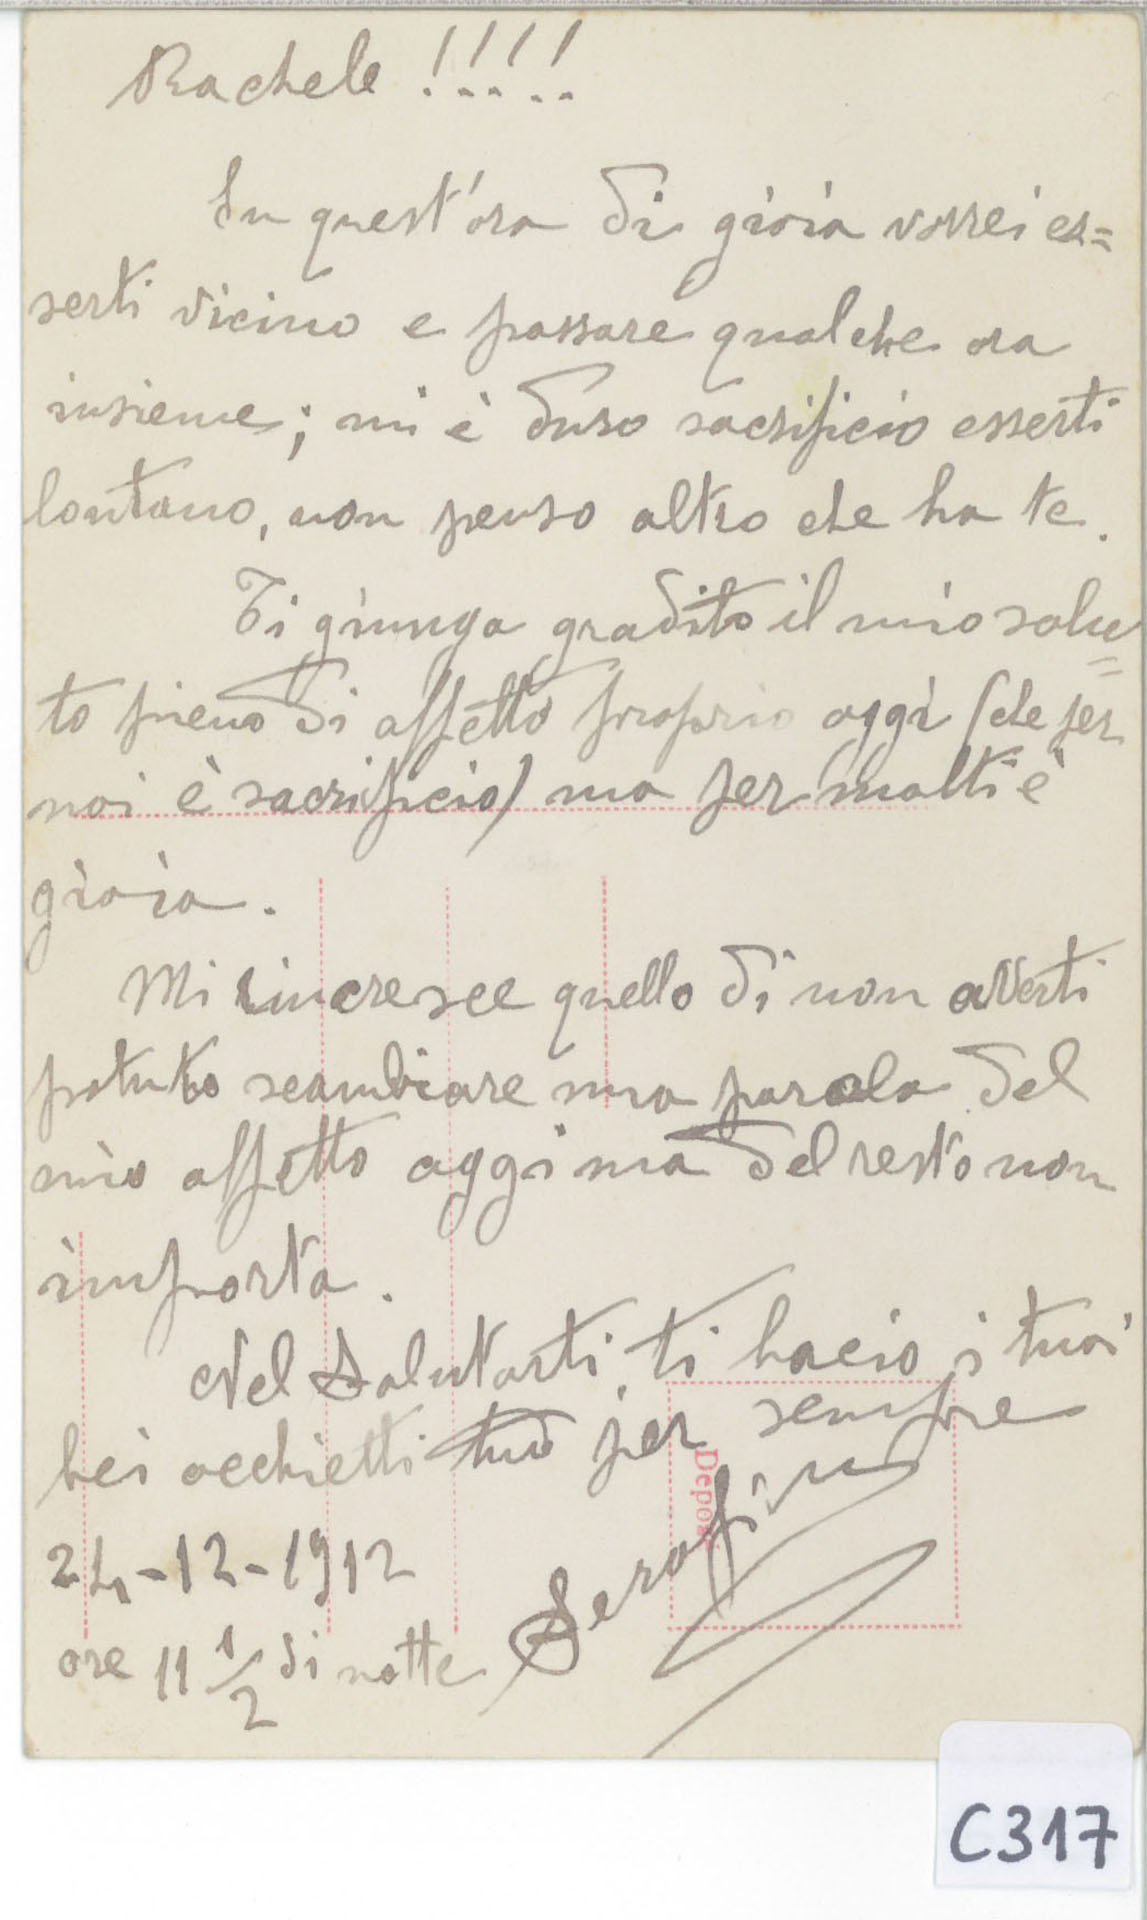 Rachele !!!!!
In quest'ora di gioia vorrei es=
serti vicino e passare qualche ora
insieme; mi è duro sacrificio esserti
lontano, non penso altro che ha te.
Ti giunga gradito il mio salu=
to pieno di affetto proprio oggi (che per
noi è sacrificio) ma per molti è
gioia.
Mi rincresce quello di non averti
potuto scambiare una parola del
mio affetto oggi ma del resto non
importa.
Nel salutarti ti bacio i tuoi
bei occhietti tuo per sempre
Depos
Serafino
24-12-1912
ore 11 1/2 di notte
C317